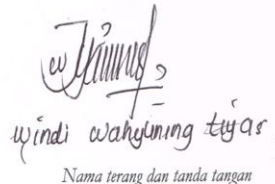 windi wahyuning tyas
Nama terang dan tanda tangan